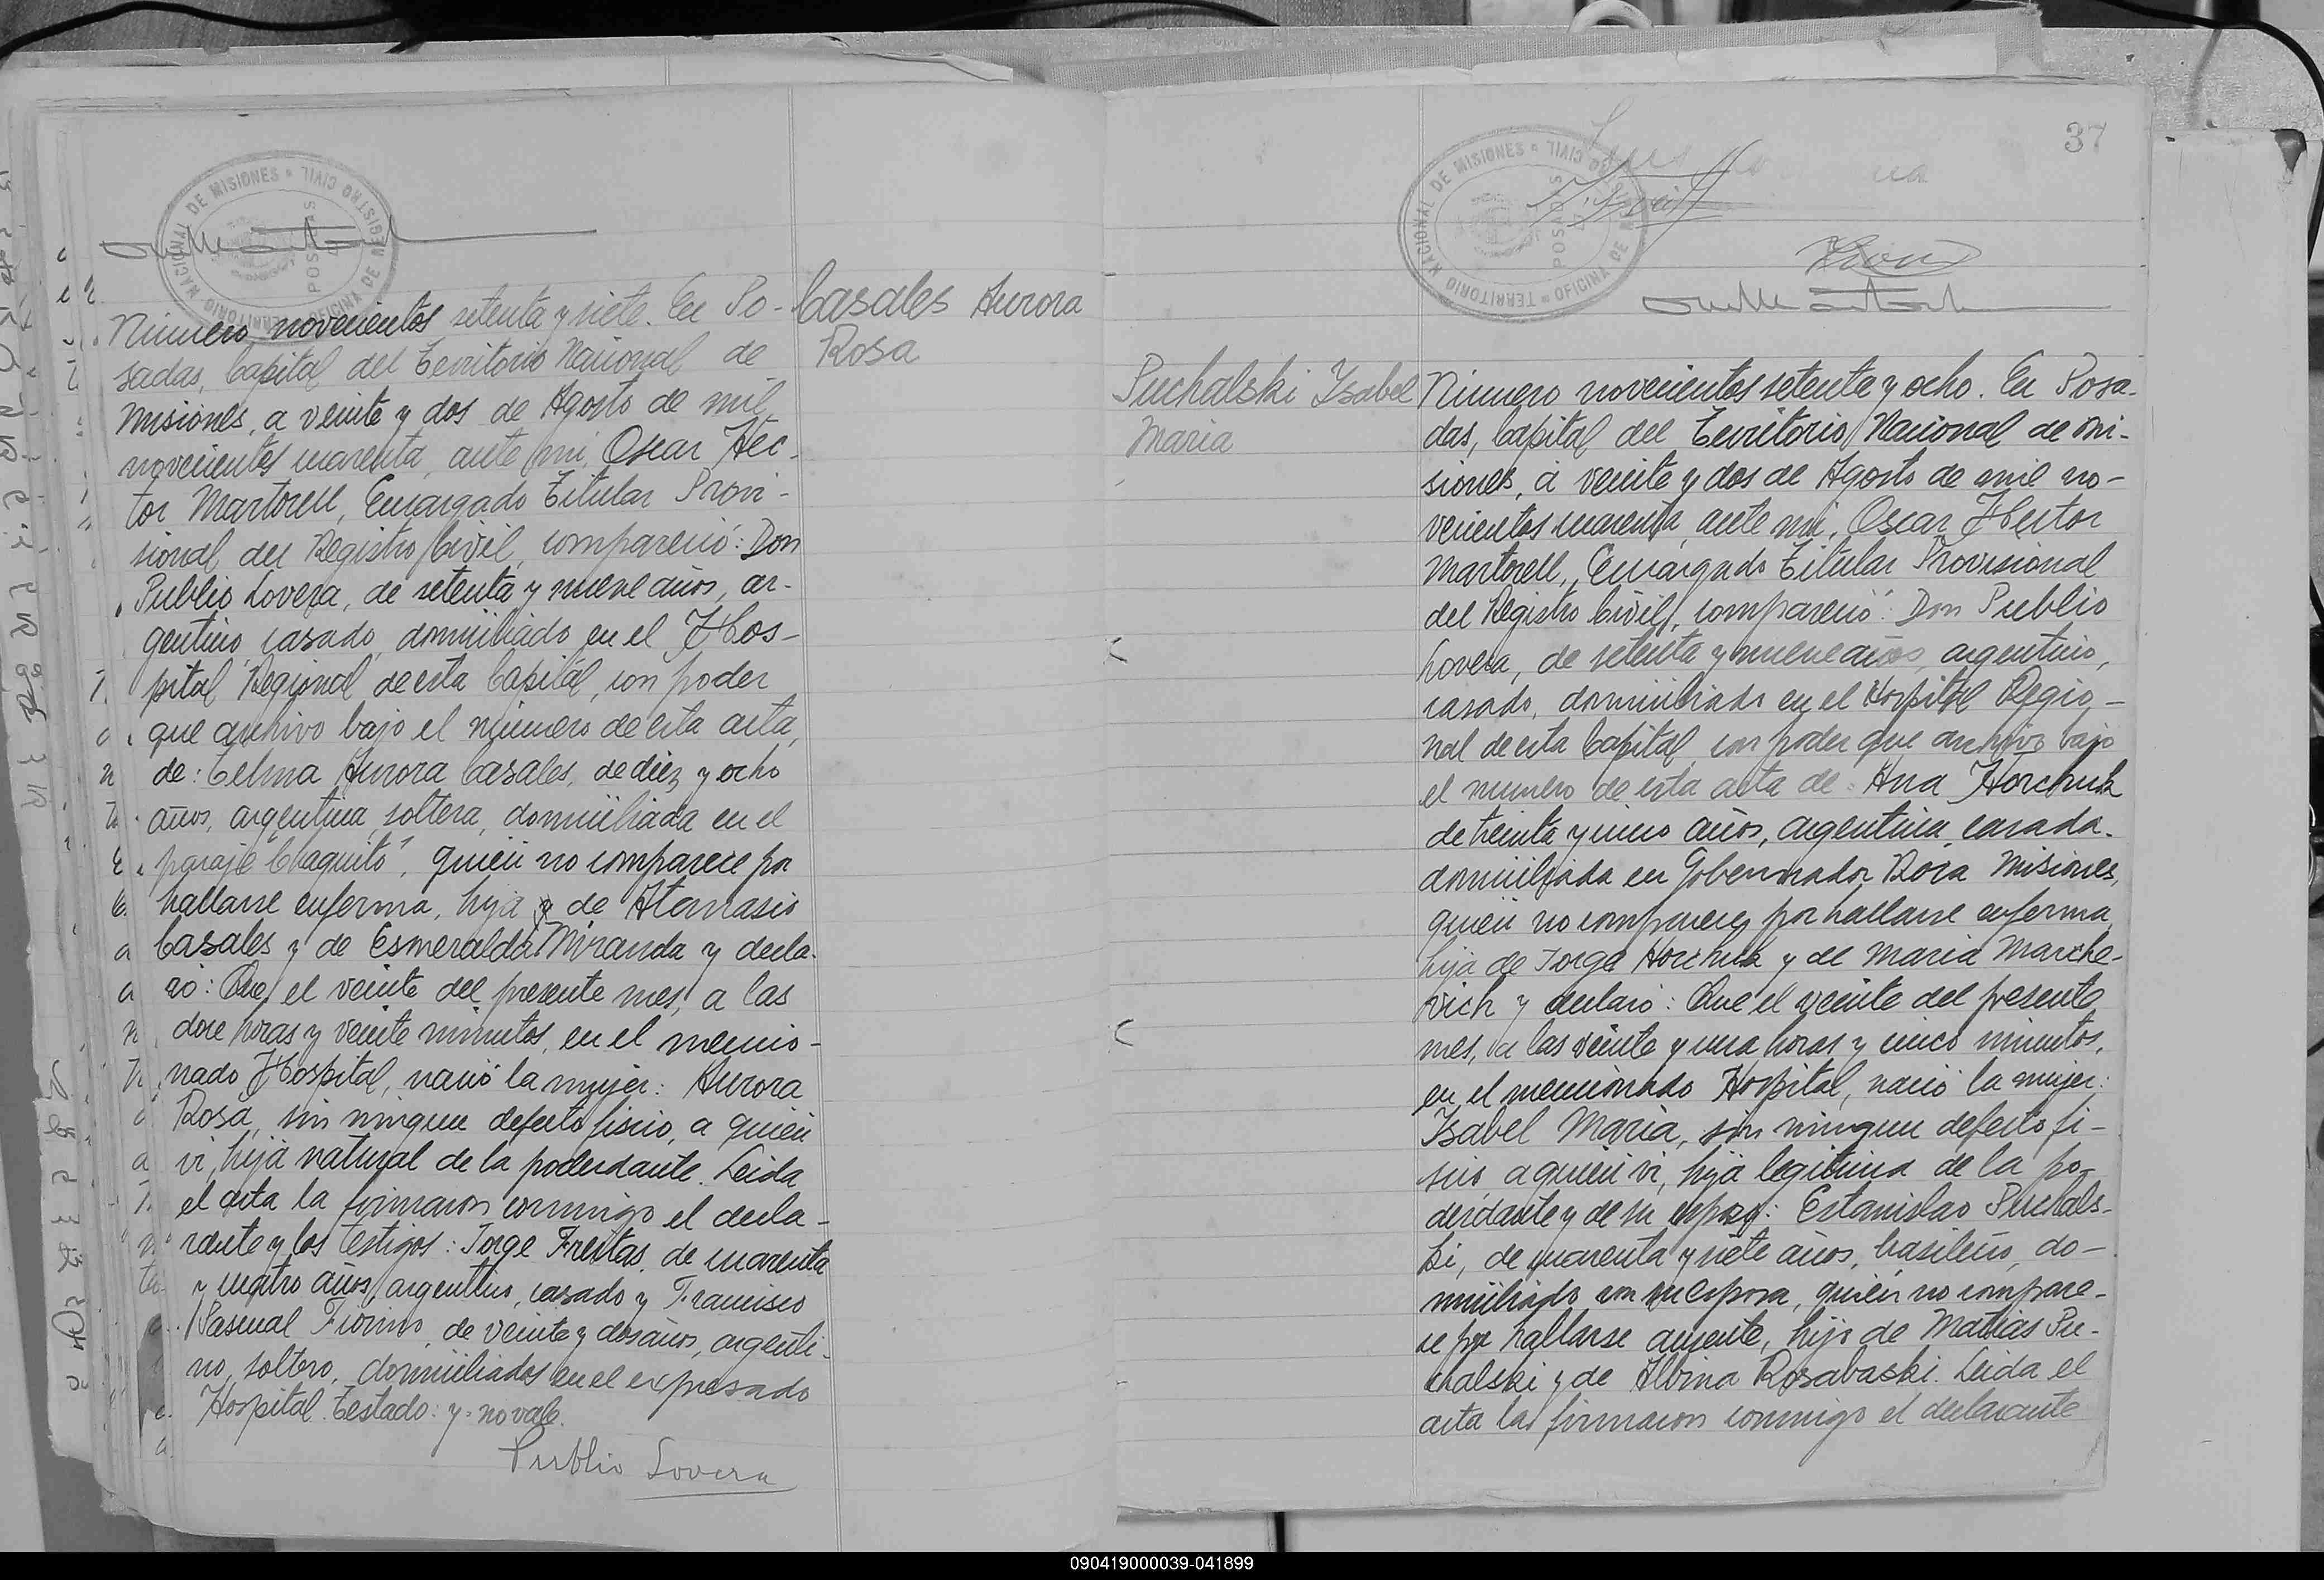 TERRITORIO NACIONAL DE MISIONES
OFICINA DE REGISTRO CIVIL
POSADAS
Casales Aurora
Rosa
Número novecientos setenta y siete. En Po-
sadas, Capital del Territorio Nacional de
Misiones, a veinte y dos de Agosto de mil
novecientos cuarenta, ante mi, Oscar Héc-
tor Martorell, Encargado Titular Provi-
sional del Registro Civil, compareció: Don
Publio Lovera, de setenta y nueve años, ar-
gentino, casado, domiciliado en el Hos-
pital Regional de esta Capital, con poder
que archivo bajo el número de esta acta,
de: Telma Aurora Casales, de diez y ocho
años, argentina, soltera, domiciliada en el
paraje "Chaquito", quien no comparece por
hallarse enferma, hija y de Atanasio
Casales y de Esmeralda Miranda y decla-
ró: Que el veinte del presente mes, a las
doce horas y veinte minutos, en el mencio-
nado Hospital, nació la mujer: Aurora
Rosa, sin ningun defecto fisico, a quien
vi, hija natural de la poderdante. Leida
el acta la firmaron conmigo el decla-
rante y los testigos: Jorge Freitas, de cuarenta
y cuatro años, argentino, casado y Francisco
Pascual Fiorino, de veinte y dos años, argenti-
no, soltero, domiciliados en el expresado
Hospital. Testado: y-no vale.
Publio Lovera
37
TERRITORIO NACIONAL DE MISIONES
OFICINA DE REGISTRO CIVIL
POSADAS
Puchalski Isabel
Maria
Número novecientos setenta y ocho. En Posa-
das, Capital del Territorio Nacional de Mi-
siones, a veinte y dos de Agosto de mil no-
vecientos cuarenta, ante mi, Oscar Hector
Martorell, Encargado Titular Provisional
del Registro Civil, compareció: Don Publio
Lovera, de setenta y nueve años, argentino,
casado, domiciliado en el Hospital Regio-
nal de esta Capital, con poder que archivo bajo
el número de esta acta de: Ana Horchuk
de treinta y cinco años, argentina, casada,
domiciliada en Gobernador Roca Misiones,
quien no comparece por hallarse enferma,
hija de Jorge Horchuk y de Maria Marche-
vich y declaró: Que el veinte del presente
mes, a las veinte y una horas y cinco minutos,
en el mencionado Hospital, nació la mujer:
Isabel Maria, sin ningun defecto fi-
sico a quien vi, hija legitima de la po-
derdante y de su esposo: Estanislao Puchals-
ki, de cuarenta y siete años, brasileño, do-
miciliado con su esposa, quien no compare-
ce por hallarse ausente, hijo de Matias Pu-
chalski y de Albina Rosabaski. Leida el
acta la firmaron conmigo el declarante
090419000039-041899